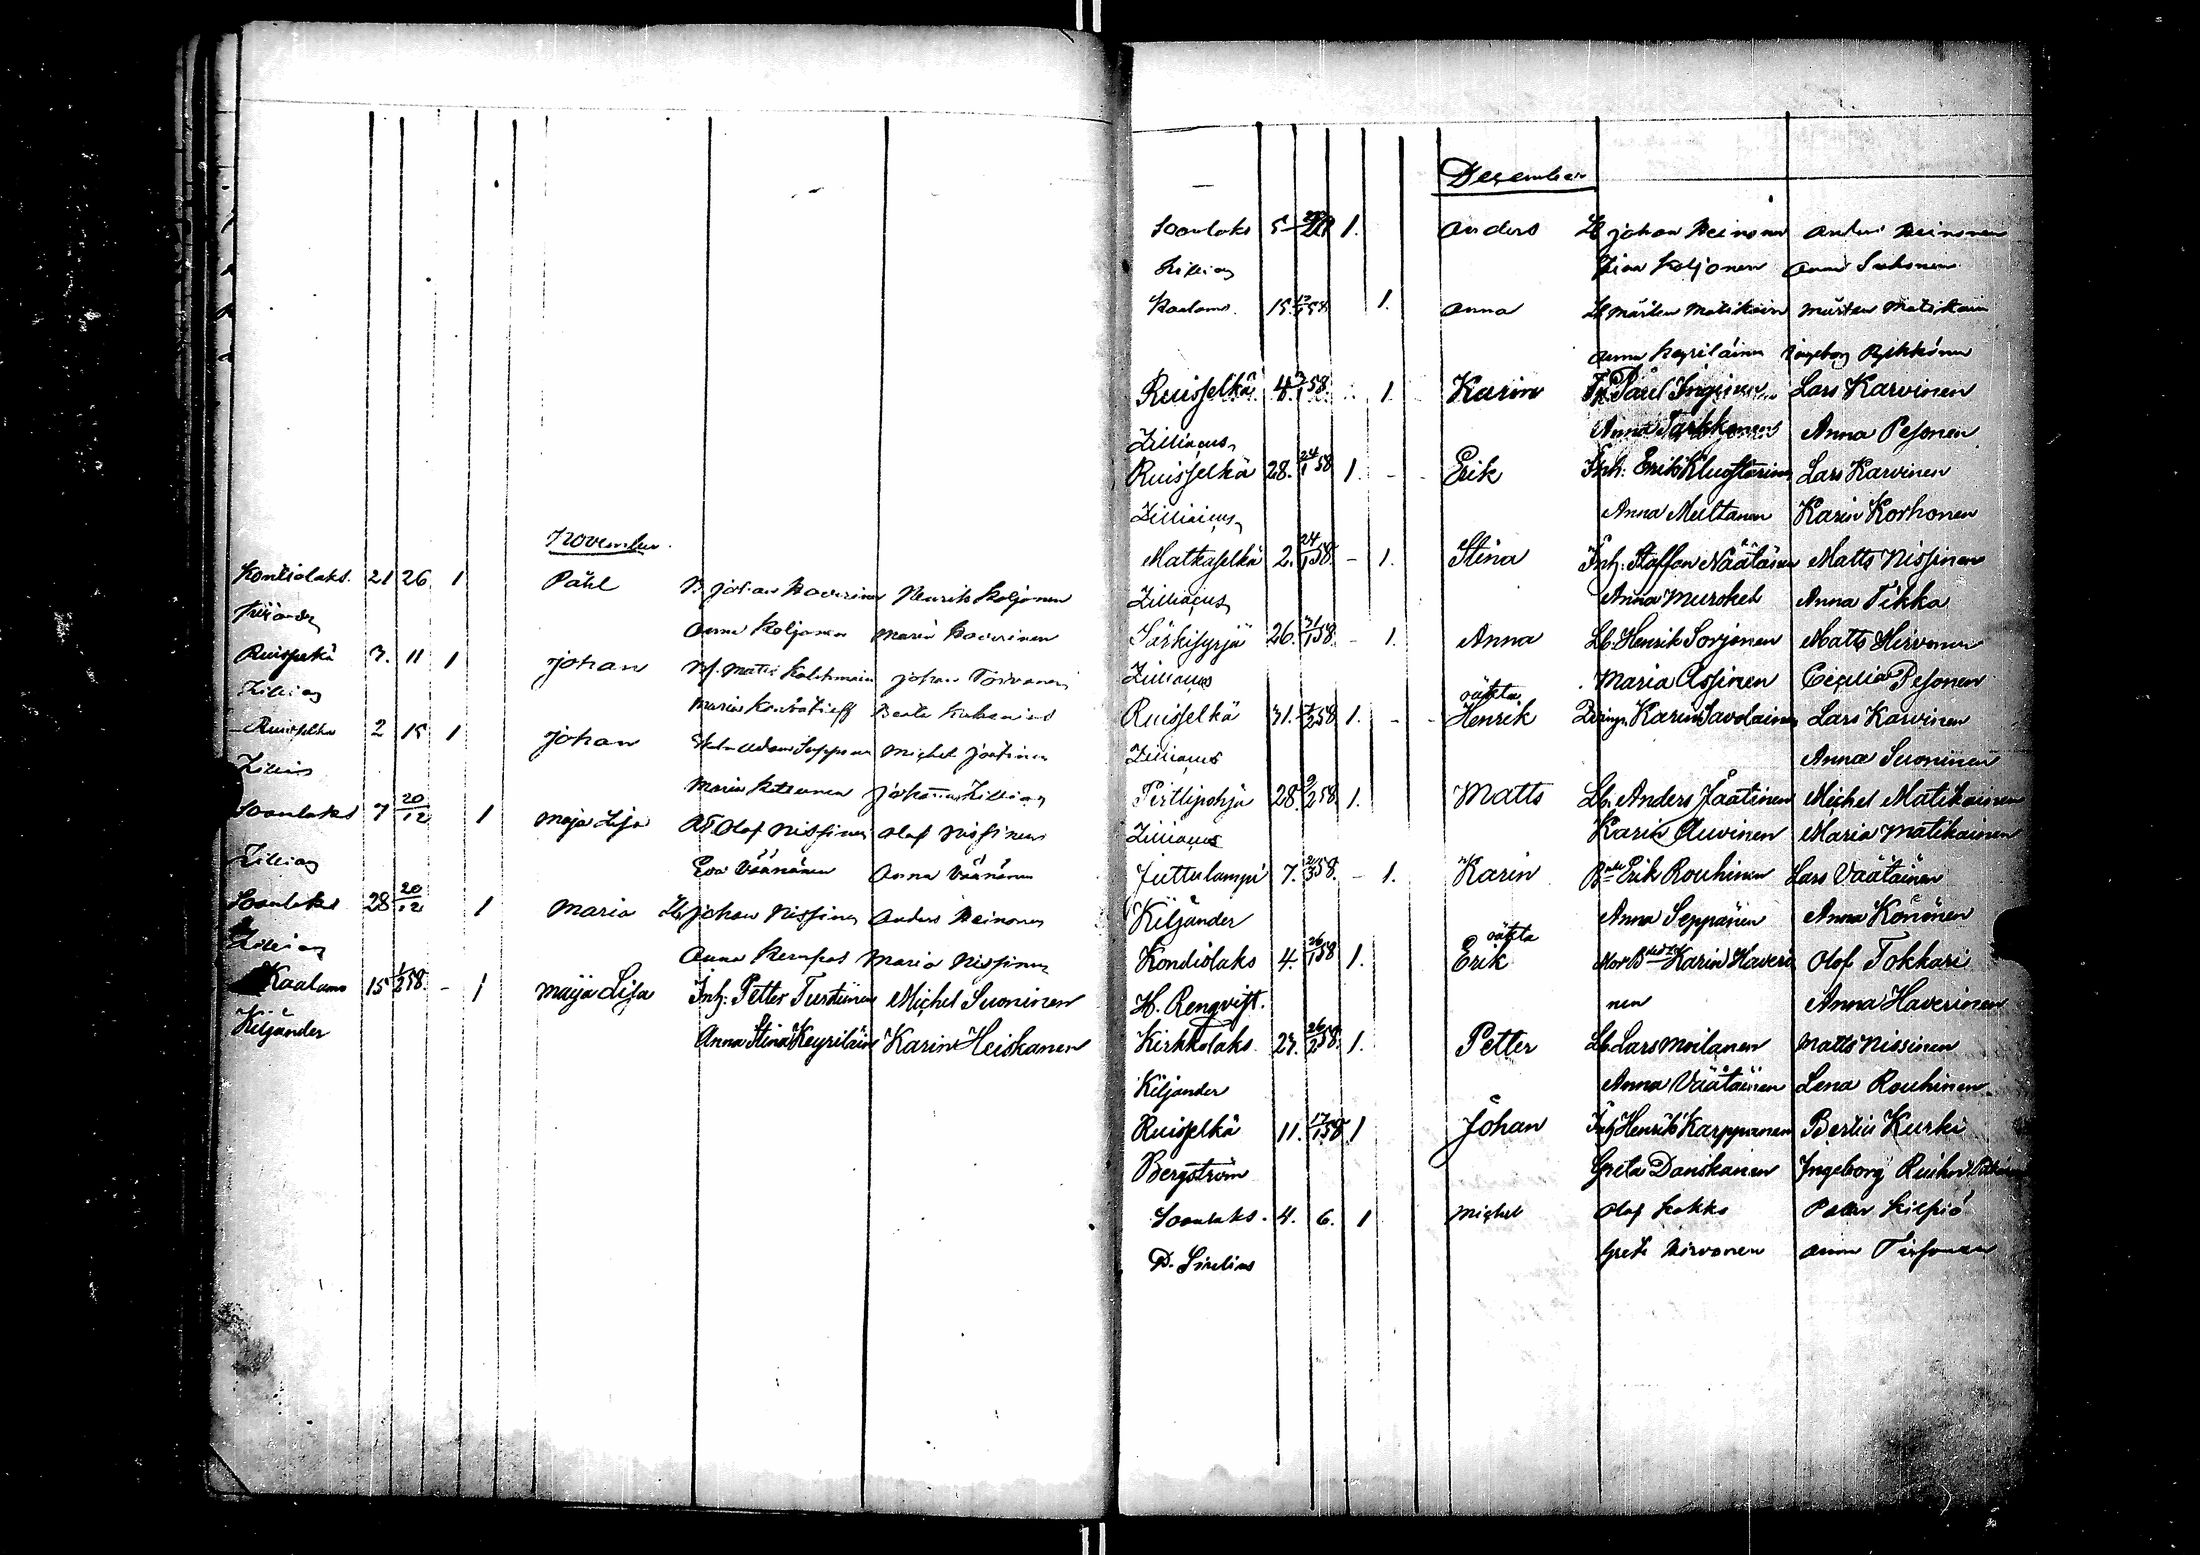 November.
Kontiolaks. 21 26 1 Påhl Johan Haverinen Henrik Koljonen
Kiljander Anna Koljonen Maria Haverinen
Ruisselkä 3. 11 1 Johan Johan Torvonen
Zilliacus Maria Beata
Ruisselkä 2 15 1 Johan Michel Jäätinen
Zilliacus Maria Johanna Zilliacus
Soanlaks 7 20/12 1 Maja Lisa Olof Nissinen Olof Nissinen
Zilliacus Eva Väänänen Anna Väänänen
Soanlaks 28 20/12 1 Maria Johan Nissinen Anders Heinonen
Zilliacus Anna Maria Nissinen
Kaalamo 15 1/2 58. - 1 Maija Lisa Inh: Petter Turtiinen Michel Suoninen
Kiljander Anna Stina Keyriläin Karin Heiskanen
December
Soanlaks 5 1. Anders Lb Johan Heinonen Anders Heinonen
Zilliacus Koljonen Anna
Kaalamo. 15. 1. Anna Lb Mårten Matikain Mårten Matikain
Anna Keyriläinen Ingeborg
Ruisselkä 4 58. 1 Karin Paul Lars Karvinen
Zilliacus Anna Tarkkonen Anna Pesonen
Ruisselkä 28. 24/1 58 1. - Erik Inh: Erik Lars Karvinen
Zilliacus Anna Multanen Karin Korhonen
Matkaselkä 2. 24/1 58. - 1. Stina Inh: Staffan Näätänen Matts Nissinen
Zilliacus Anna Murokek Anna Tikka
Särkisyrjä 26. 31/1 58. - 1. Anna Lb. Henrik Sorjonen Matts Hirvonen
Zilliacus Maria Assinen Cecilia Pesonen
oäkta
Ruisselkä 31. 58. 1. - - Henrik Karin Savolainen Lars Karvinen
Zilliacus Anna Suoninen
Pirttipohja 28. 9/2 58. 1. Matts Lb. Anders Jäätinen Michel Matikainen
Zilliacus Karin Auvinen Maria Matikainen
Juttulampi 7. 58. - 1. Karin Erik Rouhinen Lars Väätäinen
Kiljander Anna Seppänen Anna Kononen
oäkta
Kondiolaks 4. 26/1 58 1. Erik Karin Haveri Olof Tokkari
H. Rengvist. nen Anna Haverinen
Kirkkolaks. 27. 26/2 58. 1. Petter Lb. Lars Moilanen Matts Nissinen
Kiljander Anna Väätäinen Lena Rouhinen
Ruisselkä 11. 17/1 58 1 Johan Inh Henrik Karppanen Bertil Kurki
Bergström Greta Danskanen Ingeborg
Soanlaks. 4. 6. 1 Michel Olof Kokko Petter Kilpiö
D. Sirelius Greta Hirvonen Anna